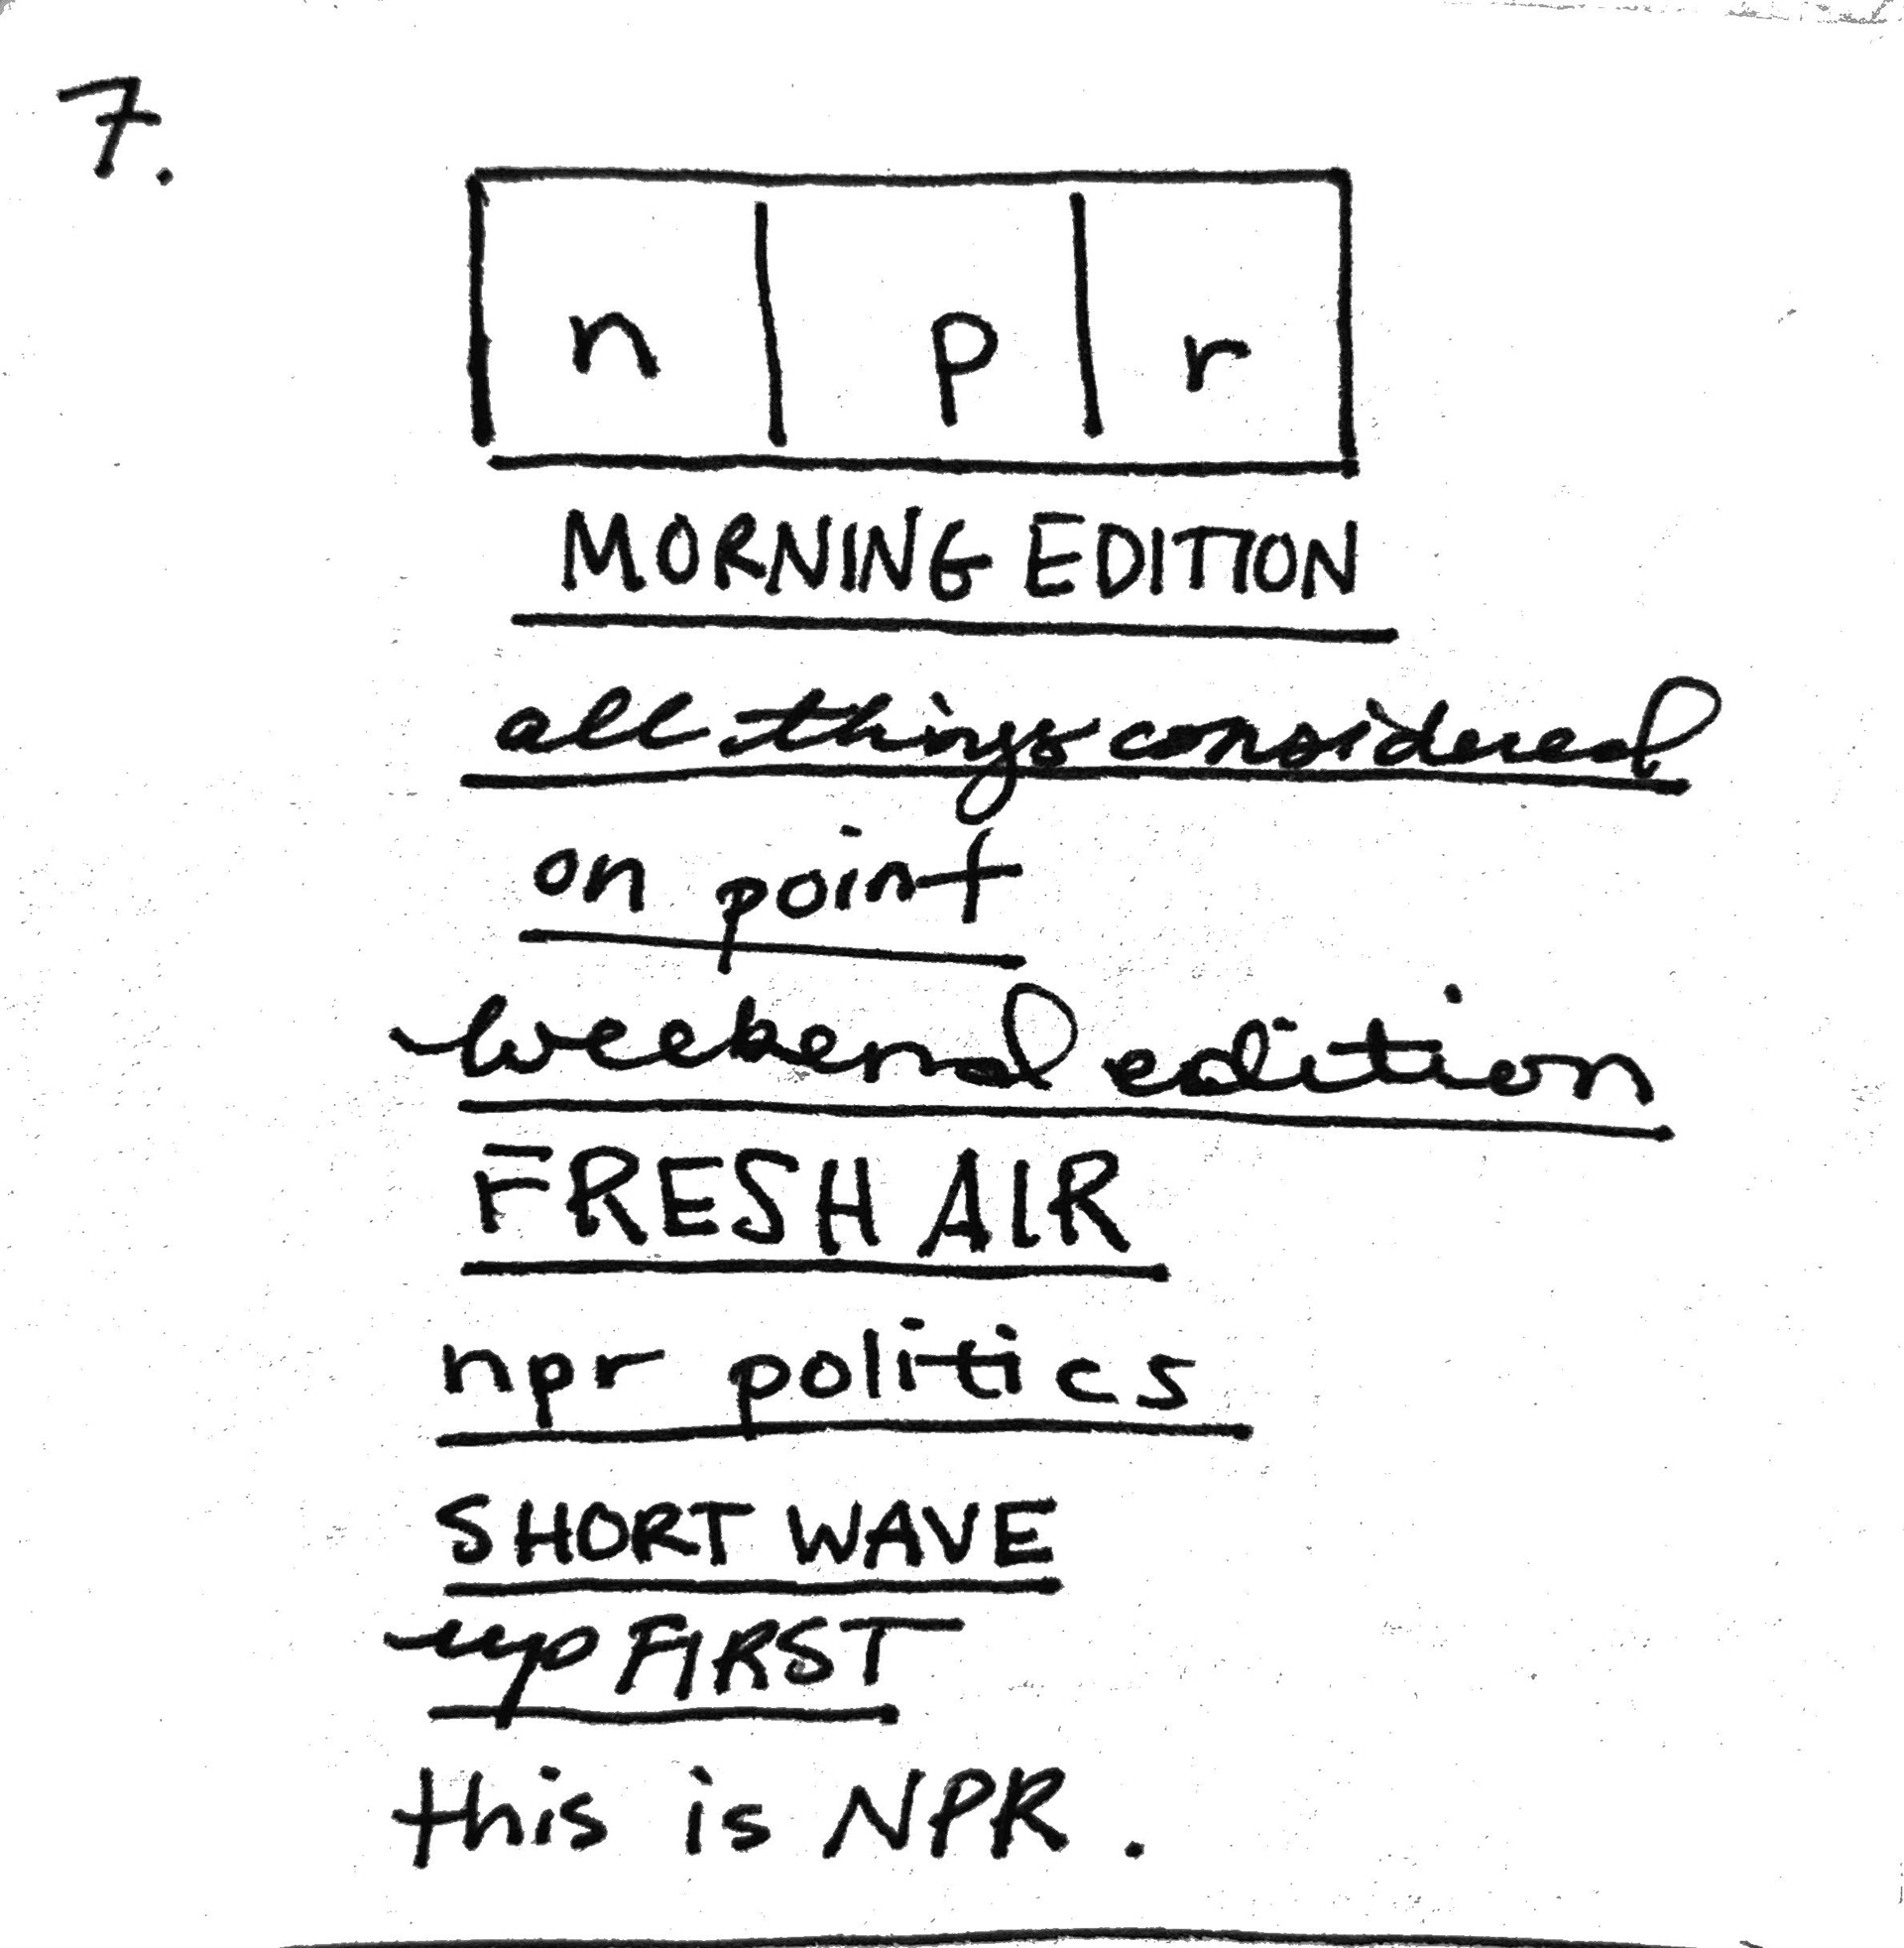 7.
n p r
MORNING EDITION
all things considered
on point
weekend edition
FRESH AIR
npr politics
SHORT WAVE
up FIRST
this is NPR.